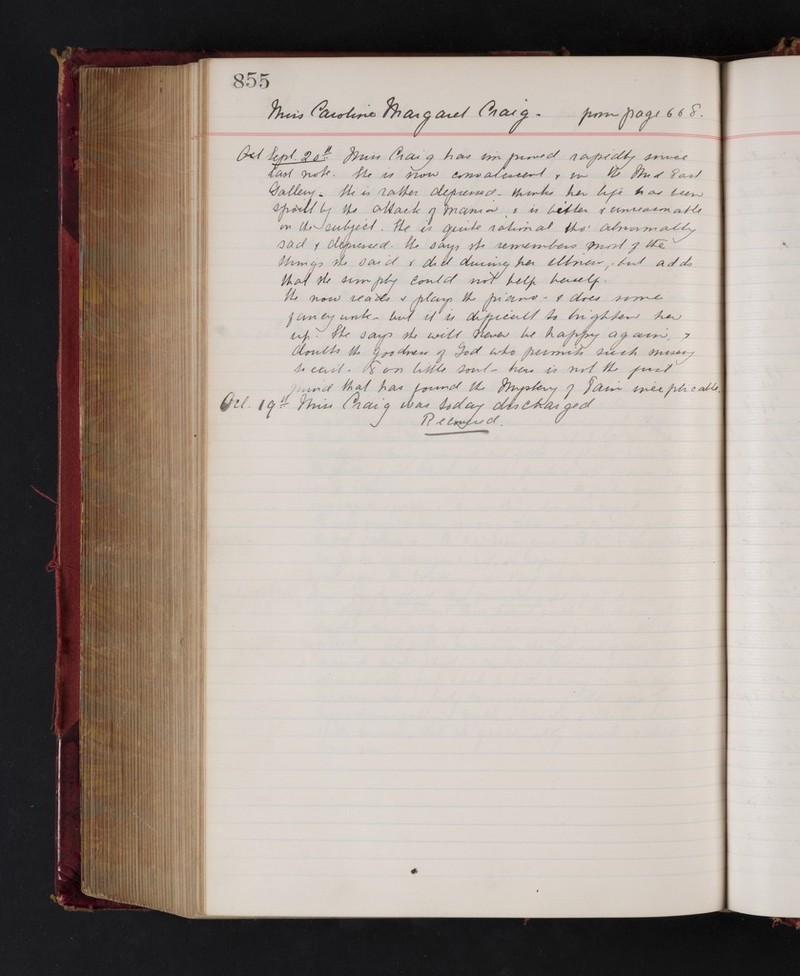 855
Miss Caroline Margaret Craig - from page 668.
Oct Sept. 20th Miss Craig has improved rapidly since
last note. She is now convalescent & in the Mid East
Gallery - She is rather depressed - thinks her life has been
spoilt by the attack of mania, & is bitter & unreasonable
on the subject. She is quite rational tho' abnormally
sad & depressed. She says she remembers most of the
things she said & did during her illness, but adds
that she simply could not help herself.
She now reads & plays the piano - & does some
fancy work - but it is difficult to brighten her
up. She says she will never be happy again, &
doubts the goodness of God who permits such misery
to exist. Poor little soul - hers is not the first
mind that has found the Mystery of Pain inexplicable.
Oct. 19th Miss Craig was today discharged
Relieved.